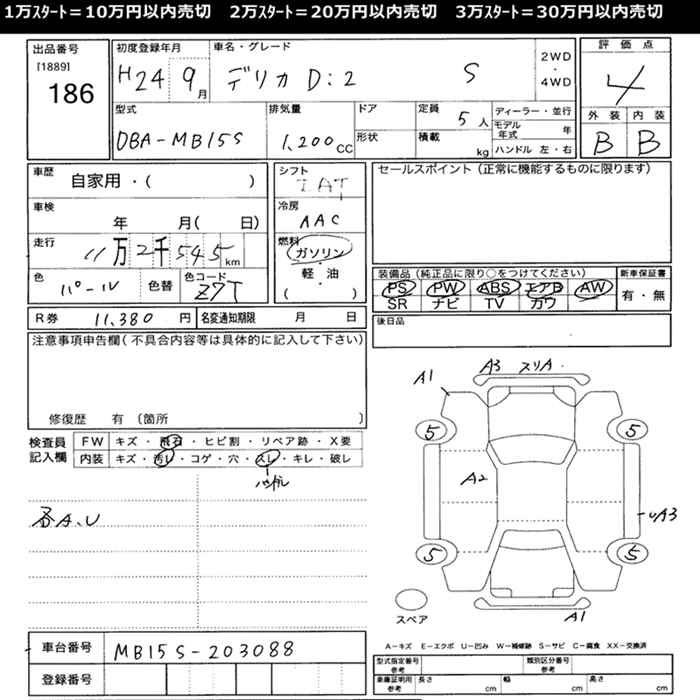 1万ｽﾀｰﾄ＝10万円以内売切　2万ｽﾀｰﾄ＝20万円以内売切　3万ｽﾀｰﾄ＝30万円以内売切
出品番号
[1889]
186
初度登録年月
H24 9月
車名・グレード
デリカ D:2 S
2WD
・
4WD
評価点
4
型式
DBA-MB15S
排気量
1,200cc
ドア
形状
定員 5人
積載 kg
ディーラー・並行
モデル年式 年
ハンドル 左・右
外装 内装
B B
車歴 自家用・( )
車検 年 月( 日)
走行 11万2千545km
色 パール 色替 色コード Z7T
シフト
IAT
冷房
AAC
燃料
ガソリン
軽・油
( )
セールスポイント（正常に機能するものに限ります）
装備品（純正品に限り○をつけてください）
PS PW ABS エアB AW
SR ナビ TV カワ
新車保証書
有・無
R券 11,380円 名変通知期限 月 日
後日品
注意事項申告欄（不具合内容等は具体的に記入して下さい）
修復歴 有 （箇所 ）
検査員記入欄
FW キズ・飛石・ヒビ割・リペア跡・X要
内装 キズ・汚レ・コゲ・穴・スレ・キレ・破レ
ハンドル
各A.U
A1
A3 スリA.
5 5
A2
UA3
5 5
スペア
A1
車台番号 MB15S-203088
登録番号
A－キズ E－エクボ U－凹み W－補修跡 S－サビ C－腐食 XX－交換済
型式指定番号 参考 類別区分番号 参考
車庫証明用 参考 長さ cm 幅 cm 高さ cm